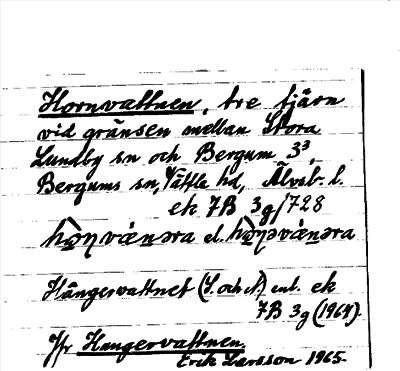 Hornvattnen, tre tjärn
vid gränsen mellan Stora
Lundby sn och Bergum 3³,
Bergums sn, Vättle hd, Älvsb. l.
ek 7B 3g/728
el.
Hångervattnet (S. och N) enl. ek
7B 3g (1964).
Jfr Hungervattnen.
Erik Larsson 1965.